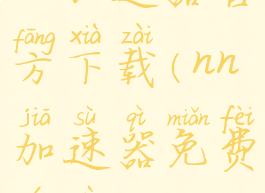 fāng xià zài
方下载(nn
jiā sù qì miǎn fèi
加速器免费